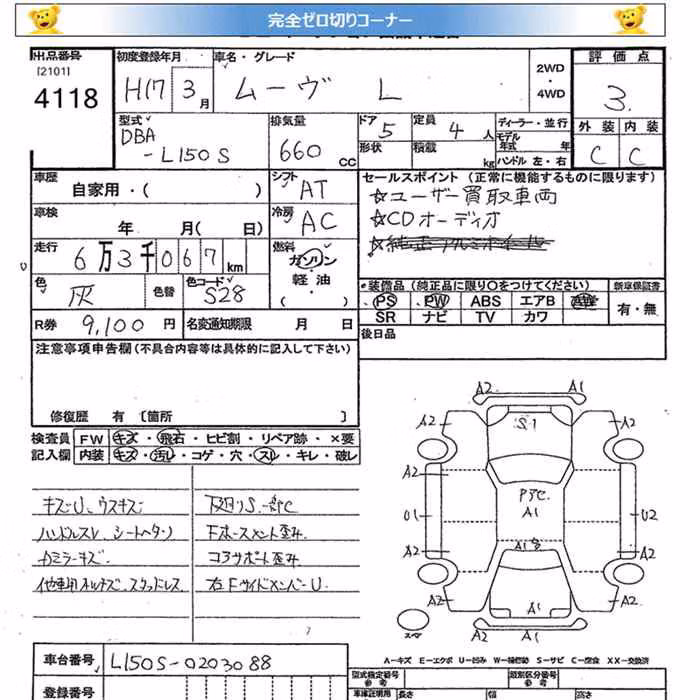 完全ゼロ切りコーナー
出品番号 初度登録年月 車名・グレード 2WD・4WD 評価点
[2101]
4118 H17 3月 ムーヴ L 3.
型式 排気量 ドア 定員 ディーラー・並行 外装 内装
DBA-L150S 660cc 5 4人 モデル年式 年 C C
形状 積載 kg ハンドル 左・右
車歴 自家用・( ) シフト AT セールスポイント(正常に機能するものに限ります)
☆ユーザー買取車両
車検 年 月(日) 冷房 AC ☆CDオーディオ
走行 6万3千067km 燃料 ガソリン・軽油・( )
色 灰 色替 色コード S28 装備品(純正品に限り〇をつけてください) 新車保証書
PS PW ABS エアB 有・無
SR ナビ TV カワ
R券 9,100円 名変通知期限 月 日 後日品
注意事項申告欄(不具合内容等は具体的に記入して下さい)
修復歴 有[箇所 ]
検査員記入欄 FW キズ・飛石・ヒビ割・リペア跡・×要
内装 キズ・汚レ・コゲ・穴・スレ・キレ・破レ
キズU、ウスキズ 下廻りS一部C
ハンドルスレ、シートヘタリ Fホースメント歪み
Rミラーキズ コアサポート歪み
他車用ホイルキズ、スタッドレス 右FサイドメンバーU
A2 A1
A2 S1 A2
A2 A2
PアC
U1 A1 U2
A2 A1 A2
A2 A1 A2
A2 A1
スペア
A-キズ E-エクボ U-凹み W-補修跡 S-サビ C-腐食 XX-交換済
車台番号 L150S-0203088
型式指定番号 参考 類別区分番号 参考
登録番号 車庫証明用 長さ 幅 高さ